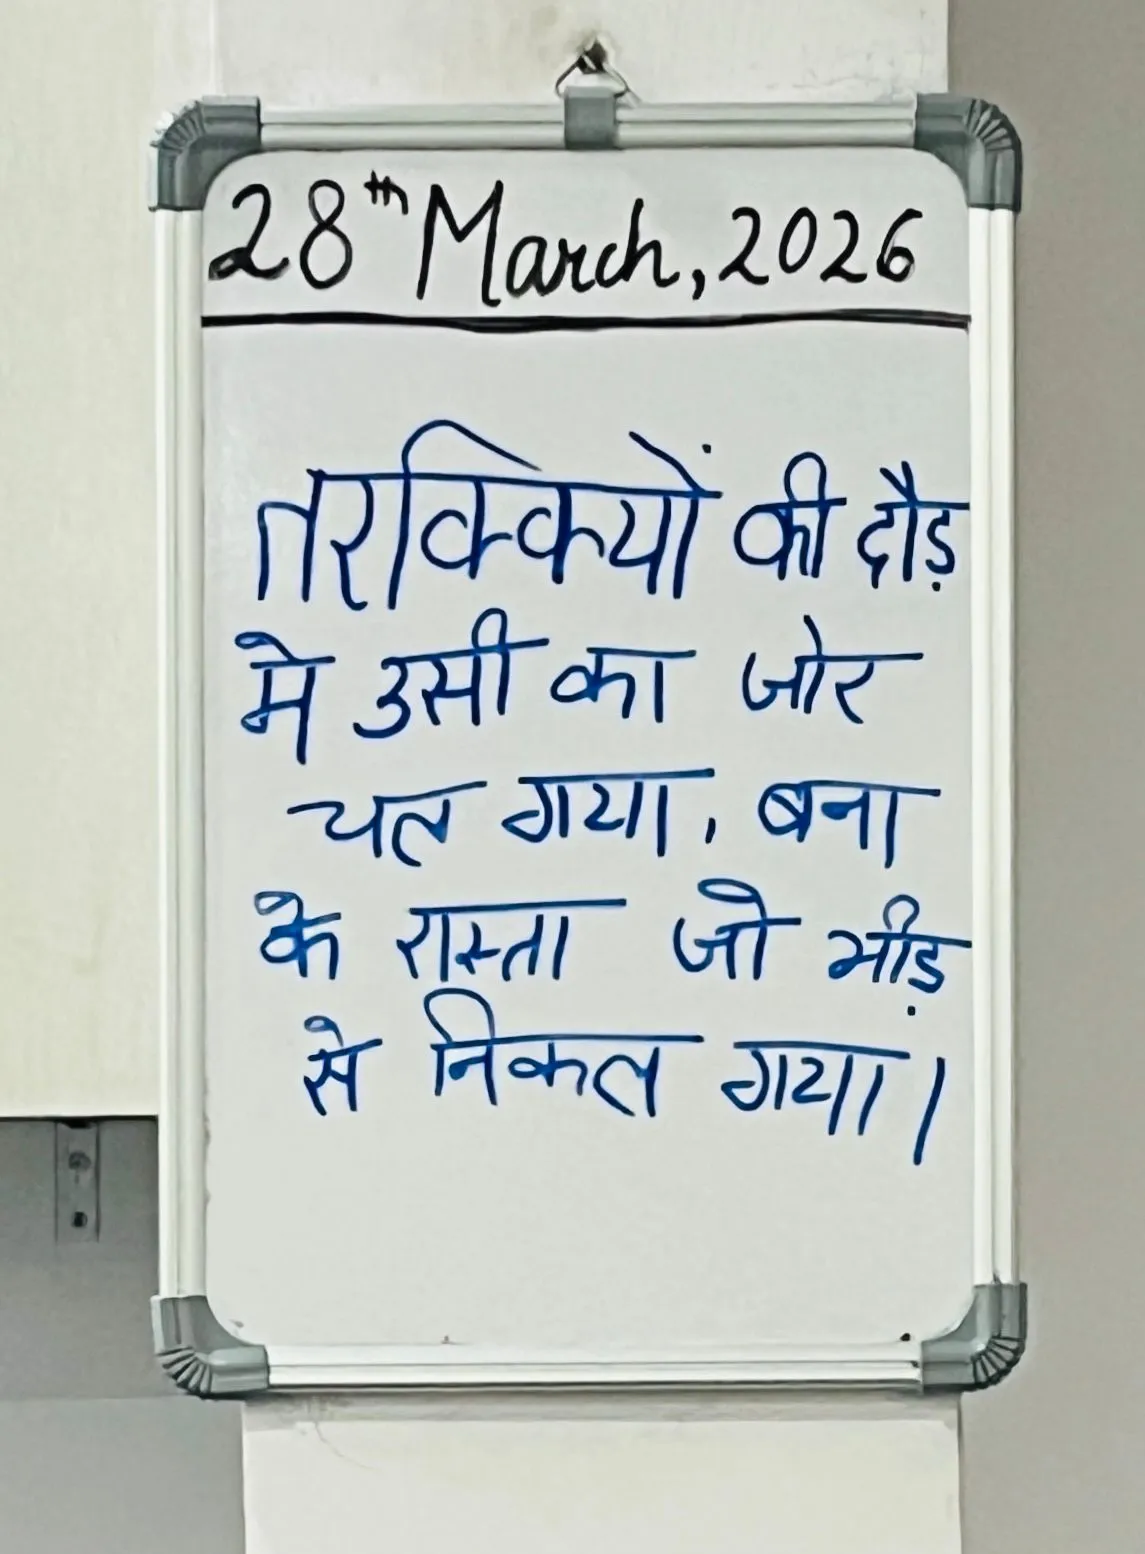 28th March, 2026
तरक्कियों की दौड़
मे उसी का जोर
चल गया, बना
के रास्ता जो भीड़
से निकल गया।